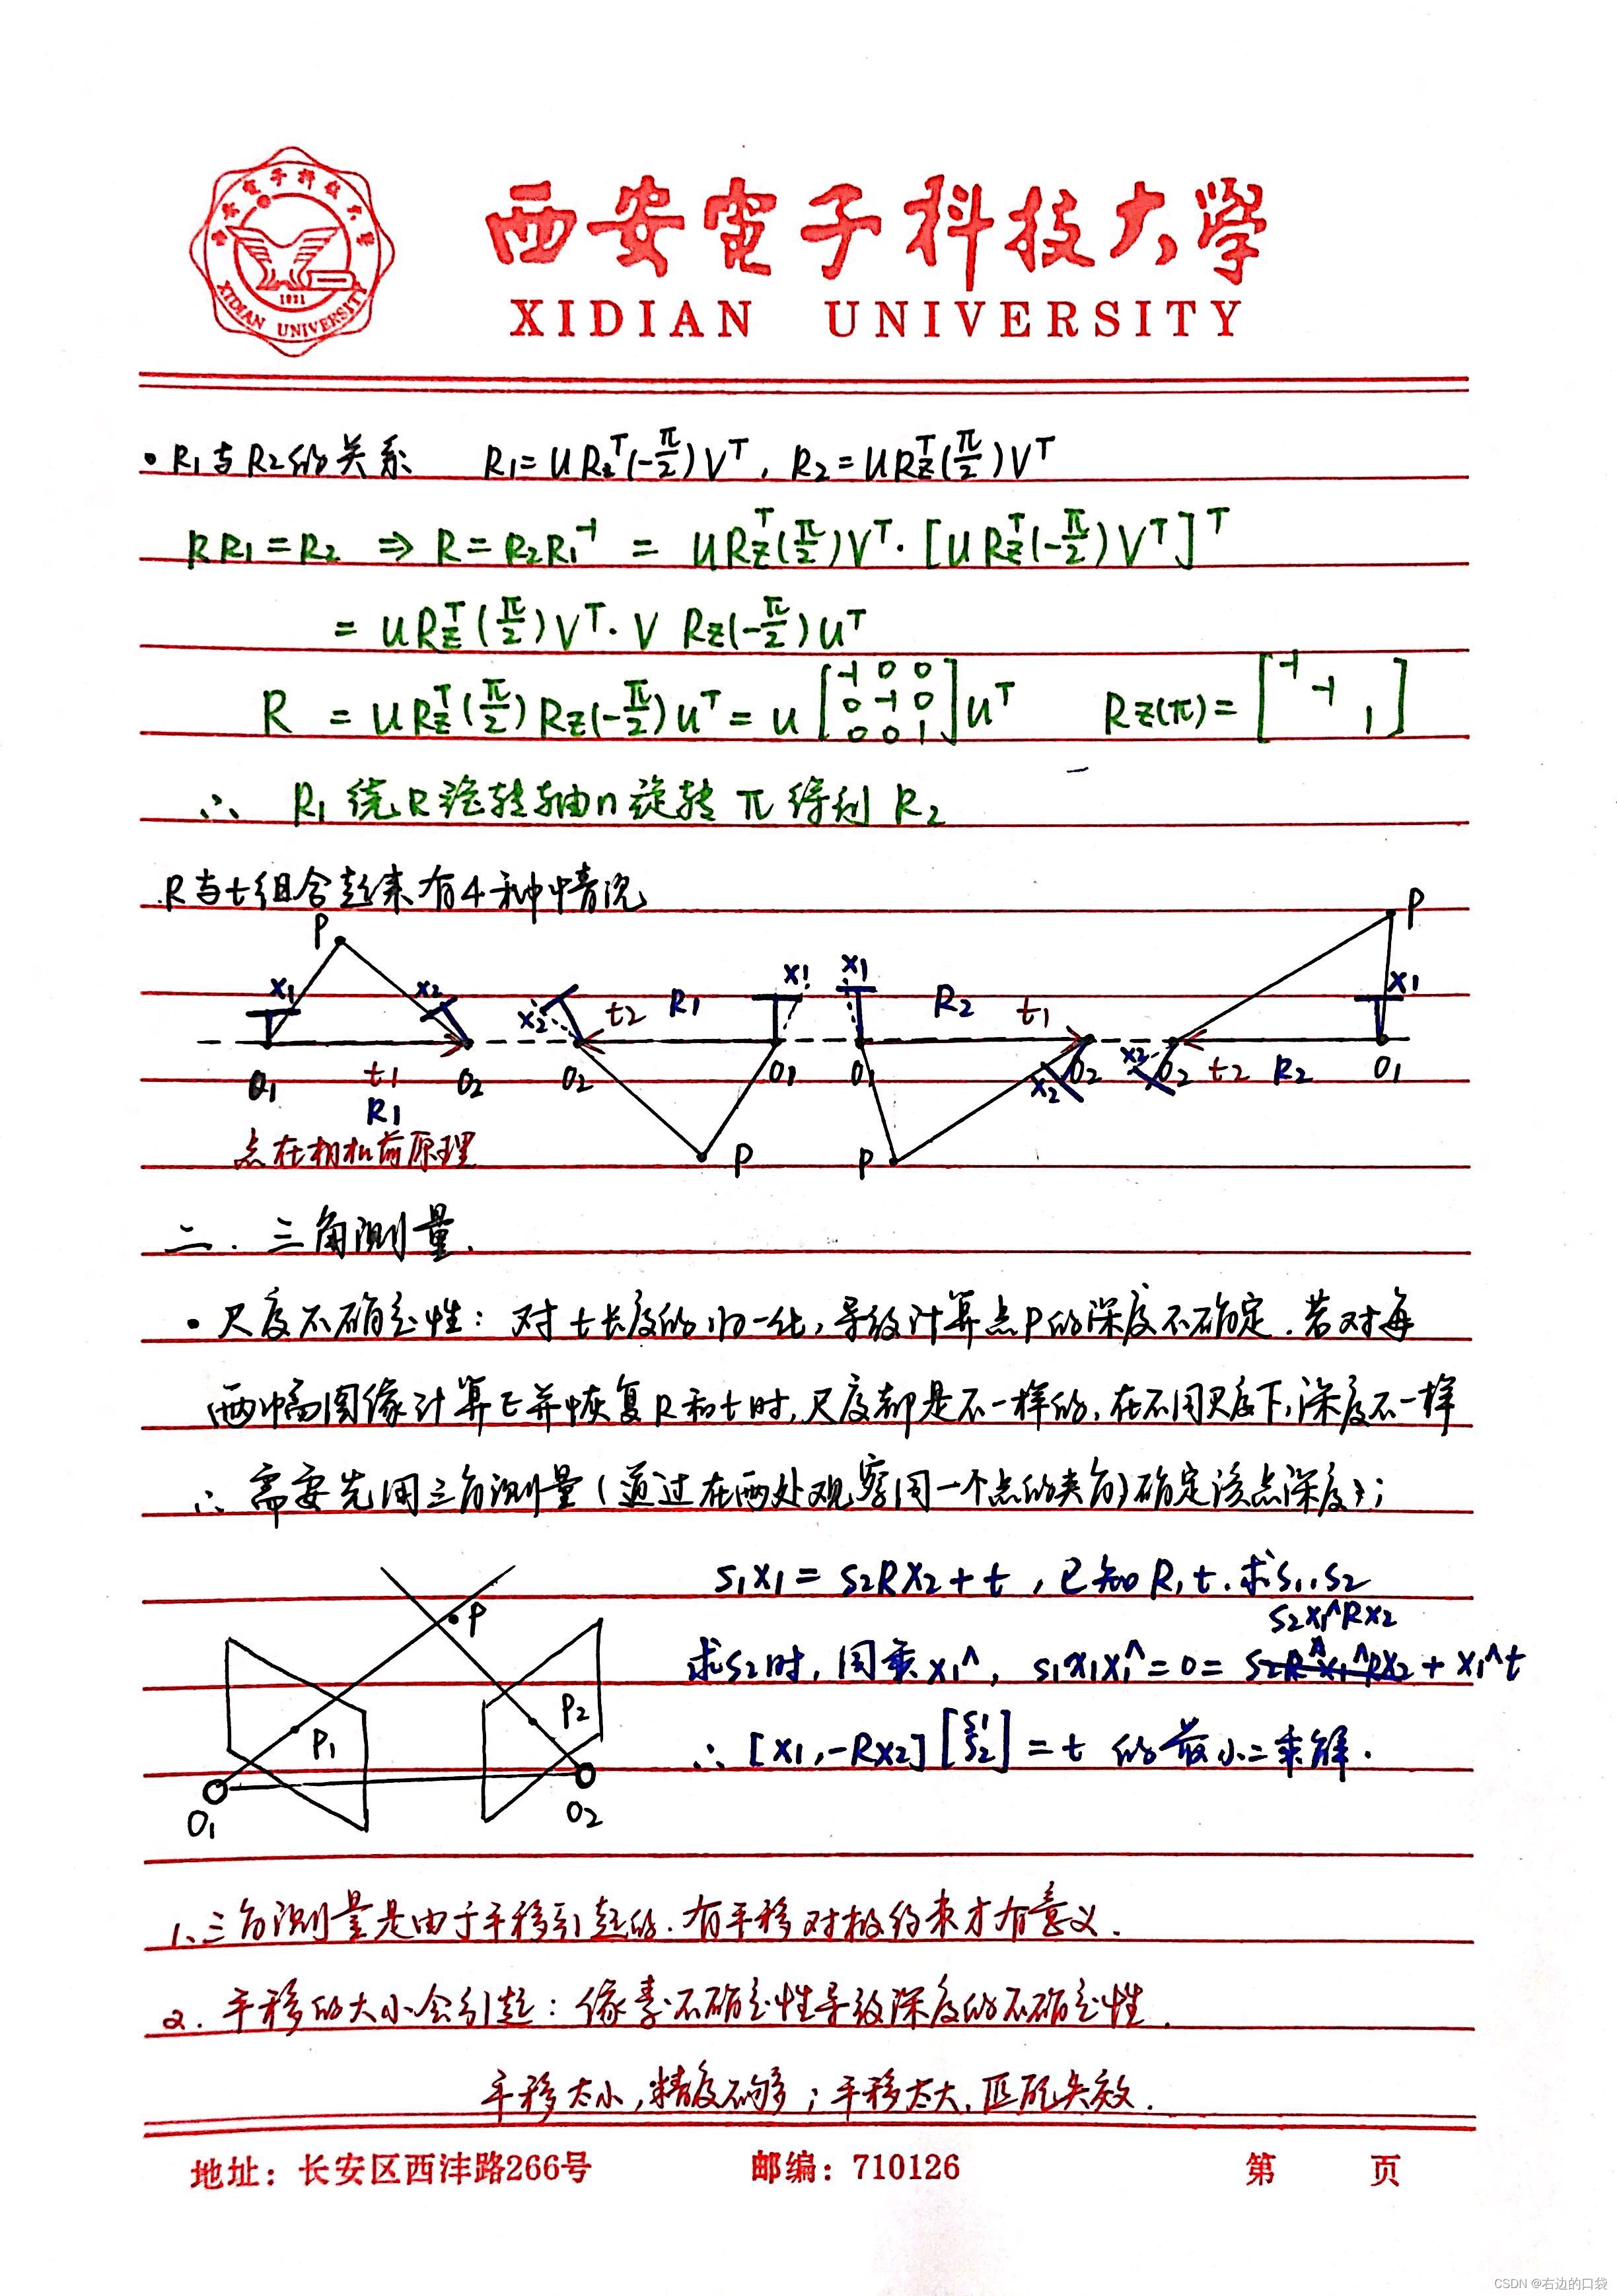 西安電子科技大學
XIDIAN UNIVERSITY
1931
XIDIAN UNIVERSITY
• R₁与R₂的关系 R₁=URzᵀ(-π/2)Vᵀ, R₂=URzᵀ(π/2)Vᵀ
RR₁=R₂ ⇒ R=R₂R₁⁻¹ = URzᵀ(π/2)Vᵀ·[URzᵀ(-π/2)Vᵀ]ᵀ
= URzᵀ(π/2)Vᵀ·V Rz(-π/2)Uᵀ
R = URzᵀ(π/2)Rz(-π/2)Uᵀ = U[-1 0 0; 0 -1 0; 0 0 1]Uᵀ Rz(π)=[-1 -1 1]
∴ R₁绕R旋转轴n旋转π得到R₂
R与t组合起来有4种情况
P P
x₁ x₂ x₂ t₂ R₁ x₁ x₁ R₂ t₁ x₁
O₁ t₁ O₂ O₂ O₁ O₁ x₂ O₂ x₂ O₂ t₂ R₂ O₁
R₁
点在相机前原理 P P
二. 三角测量.
• 尺度不确定性: 对t长度的归一化, 导致计算点P的深度不确定. 若对每
两幅图像计算E并恢复R和t时, 尺度都是不一样的, 在不同尺度下, 深度不一样
∴ 需要先用三角测量(通过在两处观察同一个点的夹角)确定该点深度;
s₁x₁ = s₂Rx₂+t, 已知R,t. 求s₁,s₂
s₂x₁^Rx₂
求s₂时, 同乘x₁^, s₁x₁x₁^=0= + x₁^t
∴ [x₁,-Rx₂][s₁ s₂]=t 的最小二乘解.
P
P₁ P₂
O₁ O₂
1、三角测量是由于平移引起的. 有平移对极约束才有意义.
2. 平移的大小会引起: 像素不确定性导致深度的不确定性.
平移太小, 精度不够; 平移太大, 匹配失效.
地址: 长安区西沣路266号 邮编: 710126 第 页
CSDN @右边的口袋